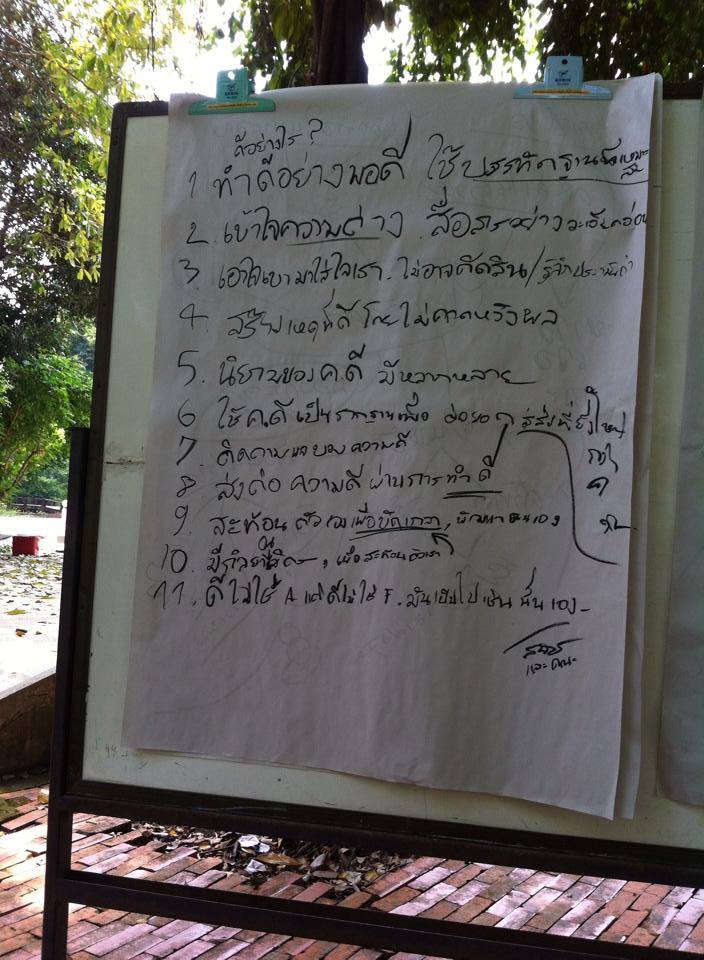 ดีอย่างไร?
1 ทำดีอย่างพอดี ใช้บรรทัดฐาน
2. เข้าใจความต่าง. สื่อสารอย่าง
3. เอาใจเขามาใส่ใจเรา. ไม่อาจตัดสิน/
4. สร้างเหตุที่ดี โดยไม่คาดหวังผล
5. นิยามของ ค.ดี มีหลากหลาย
6 ใช้ ค.ดี เป็นรากฐานเพื่อ ต่อยอด สู่สิ่งที่ยิ่งใหญ่
7. ติดตามผลของความดี
8 ส่งต่อ ความดี ผ่านการทำดี
9. สะท้อน ตัวเองเพื่อขัดเกลา, พัฒนาตนเอง
10. มี, เพื่อสะท้อนตัวเรา
11. ดีไม่ใช่ A แต่ดีไม่ใช่ F. มันเป็นไปเช่นนั้นเอง
และคณะ